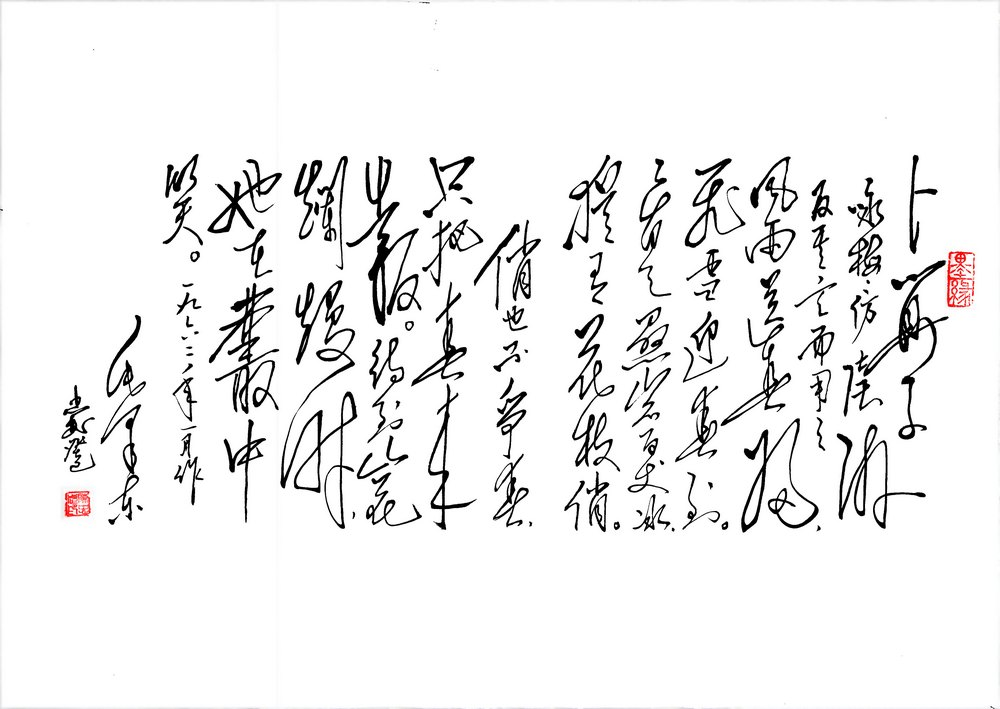 墨缘
卜算子
咏梅·仿陆游
反其意而用之
风雨送春归,
飞雪迎春到。
已是悬崖百丈冰,
犹有花枝俏。
俏也不争春,
只把春来
报。待到山花
爛熳时,
她在叢中
笑。一九六二年一月作
毛泽东